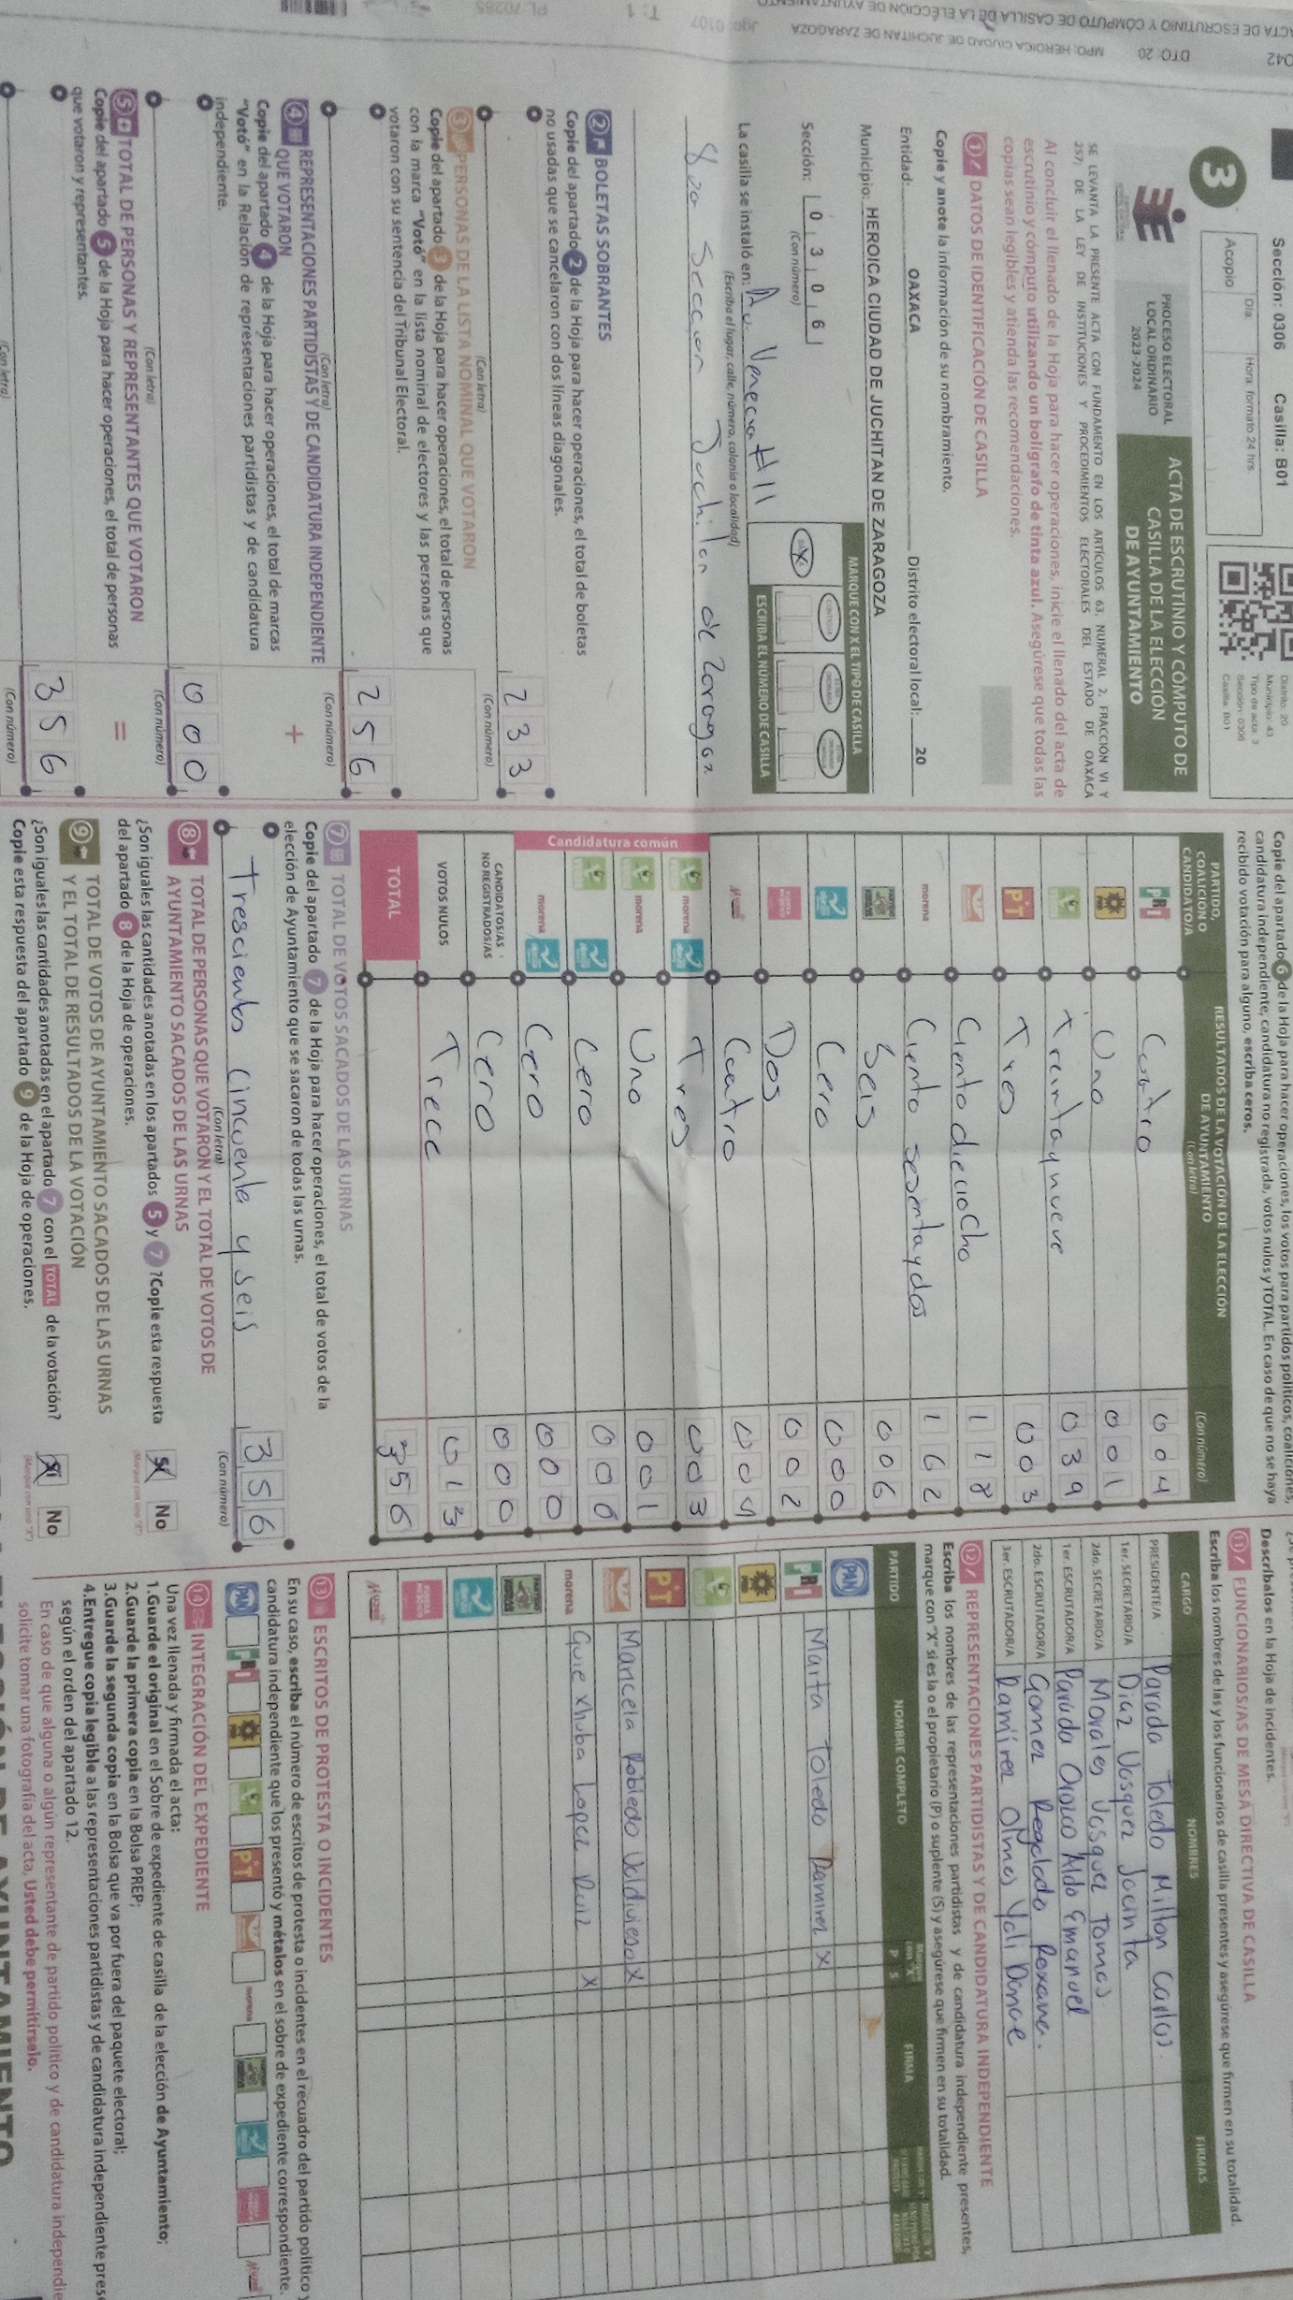 ACTA DE ESCRUTINIO Y CÓMPUTO DE CASILLA DE LA ELECCIÓN DE AYUNTAMIENTO
DTO: 20 MPO: HEROICA CIUDAD DE JUCHITAN DE ZARAGOZA
Sección: 0306 Casilla: B01
3
Día: Hora: formato 24 hrs.
Acopio
Distrito: 20
Municipio: 43
Tipo de acta: 3
Sección: 0306
Casilla: B01
PROCESO ELECTORAL
LOCAL ORDINARIO
2023-2024
ACTA DE ESCRUTINIO Y CÓMPUTO DE
CASILLA DE LA ELECCIÓN
DE AYUNTAMIENTO
SE LEVANTA LA PRESENTE ACTA CON FUNDAMENTO EN LOS ARTÍCULOS 63, NUMERAL 2, FRACCIÓN VI Y
257; DE LA LEY DE INSTITUCIONES Y PROCEDIMIENTOS ELECTORALES DEL ESTADO DE OAXACA
Al concluir el llenado de la Hoja para hacer operaciones, inicie el llenado del acta de
escrutinio y cómputo utilizando un bolígrafo de tinta azul. Asegúrese que todas las
copias sean legibles y atienda las recomendaciones.
1 DATOS DE IDENTIFICACIÓN DE CASILLA
Copie y anote la información de su nombramiento.
Entidad: OAXACA Distrito electoral local: 20
Municipio: HEROICA CIUDAD DE JUCHITAN DE ZARAGOZA
Sección: 0 3 0 6
(Con número)
MARQUE CON X EL TIPO DE CASILLA
ESCRIBA EL NÚMERO DE CASILLA
La casilla se instaló en: Av Venecia #11
(Escriba el lugar, calle, número, colonia o localidad)
8va Seccion Juchitan de Zaragoza
2 BOLETAS SOBRANTES
Copie del apartado 2 de la Hoja para hacer operaciones, el total de boletas
no usadas que se cancelaron con dos líneas diagonales.
2 3 3
(Con letra) (Con número)
3 PERSONAS DE LA LISTA NOMINAL QUE VOTARON
Copie del apartado 3 de la Hoja para hacer operaciones, el total de personas
con la marca "Votó" en la lista nominal de electores y las personas que
votaron con su sentencia del Tribunal Electoral.
2 5 6
(Con letra) (Con número)
4 REPRESENTACIONES PARTIDISTAS Y DE CANDIDATURA INDEPENDIENTE
QUE VOTARON +
Copie del apartado 4 de la Hoja para hacer operaciones, el total de marcas
"Votó" en la Relación de representaciones partidistas y de candidatura
independiente.
0 0 0
(Con letra) (Con número)
5 TOTAL DE PERSONAS Y REPRESENTANTES QUE VOTARON =
Copie del apartado 5 de la Hoja para hacer operaciones, el total de personas
que votaron y representantes.
3 5 6
(Con letra) (Con número)
Copie del apartado 6 de la Hoja para hacer operaciones, los votos para partidos políticos, coaliciones,
candidatura independiente, candidatura no registrada, votos nulos y TOTAL. En caso de que no se haya
recibido votación para alguno, escriba ceros.
PARTIDO,
COALICIÓN O
CANDIDATO/A
RESULTADOS DE LA VOTACIÓN DE LA ELECCIÓN
DE AYUNTAMIENTO
(Con letra) (Con número)
PRI Cuatro 0 0 4
PRD Uno 0 0 1
Treinta y nueve 0 3 9
PT Tres 0 0 3
Ciento dieciocho 1 1 8
morena Ciento sesenta y dos 1 6 2
Seis 0 0 6
Cero 0 0 0
Dos 0 0 2
Cuatro 0 0 4
Candidatura común
morena Tres 0 0 3
morena Uno 0 0 1
Cero 0 0 0
morena Cero 0 0 0
CANDIDATOS/AS
NO REGISTRADOS/AS Cero 0 0 0
VOTOS NULOS Trece 0 1 3
TOTAL 3 5 6
7 TOTAL DE VOTOS SACADOS DE LAS URNAS
Copie del apartado 7 de la Hoja para hacer operaciones, el total de votos de la
elección de Ayuntamiento que se sacaron de todas las urnas.
Trescientos cincuenta y seis 3 5 6
(Con letra) (Con número)
8 TOTAL DE PERSONAS QUE VOTARON Y EL TOTAL DE VOTOS DE
AYUNTAMIENTO SACADOS DE LAS URNAS
¿Son iguales las cantidades anotadas en los apartados 5 y 7 ?Copie esta respuesta
del apartado 8 de la Hoja de operaciones.
Sí No
9 TOTAL DE VOTOS DE AYUNTAMIENTO SACADOS DE LAS URNAS
Y EL TOTAL DE RESULTADOS DE LA VOTACIÓN
¿Son iguales las cantidades anotadas en el apartado 7 con el TOTAL de la votación?
Copie esta respuesta del apartado 9 de la Hoja de operaciones.
Sí No
Descríbalos en la Hoja de incidentes.
11 FUNCIONARIOS/AS DE MESA DIRECTIVA DE CASILLA
Escriba los nombres de las y los funcionarios de casilla presentes y asegúrese que firmen en su totalidad.
CARGO NOMBRES FIRMAS
PRESIDENTE/A Parada Toledo Milton Carlos.
1er. SECRETARIO/A Diaz Vasquez Jacinta
2do. SECRETARIO/A Morales Vasquez Tomas
1er. ESCRUTADOR/A Parada Orozco Aldo Emanuel
2do. ESCRUTADOR/A Gomez Regalado Roxana.
3er. ESCRUTADOR/A Ramirez Olmos Yali Danae
12 REPRESENTACIONES PARTIDISTAS Y DE CANDIDATURA INDEPENDIENTE
Escriba los nombres de las representaciones partidistas y de candidatura independiente presentes,
marque con "X" si es la o el propietario (P) o suplente (S) y asegúrese que firmen en su totalidad.
PARTIDO NOMBRE COMPLETO P S FIRMA
PAN
PRI Marita Toledo Ramirez X
PRD
PT
Maricela Robledo Valdivieso X
morena Guie Xhuba Lopez Ruiz X
13 ESCRITOS DE PROTESTA O INCIDENTES
En su caso, escriba el número de escritos de protesta o incidentes en el recuadro del partido político
candidatura independiente que los presentó y métalos en el sobre de expediente correspondiente.
PAN PRI PRD PT morena
14 INTEGRACIÓN DEL EXPEDIENTE
Una vez llenada y firmada el acta:
1.Guarde el original en el Sobre de expediente de casilla de la elección de Ayuntamiento;
2.Guarde la primera copia en la Bolsa PREP;
3.Guarde la segunda copia en la Bolsa que va por fuera del paquete electoral;
4.Entregue copia legible a las representaciones partidistas y de candidatura independiente pres
según el orden del apartado 12.
En caso de que alguna o algún representante de partido político y de candidatura independie
solicite tomar una fotografía del acta, Usted debe permitírselo.